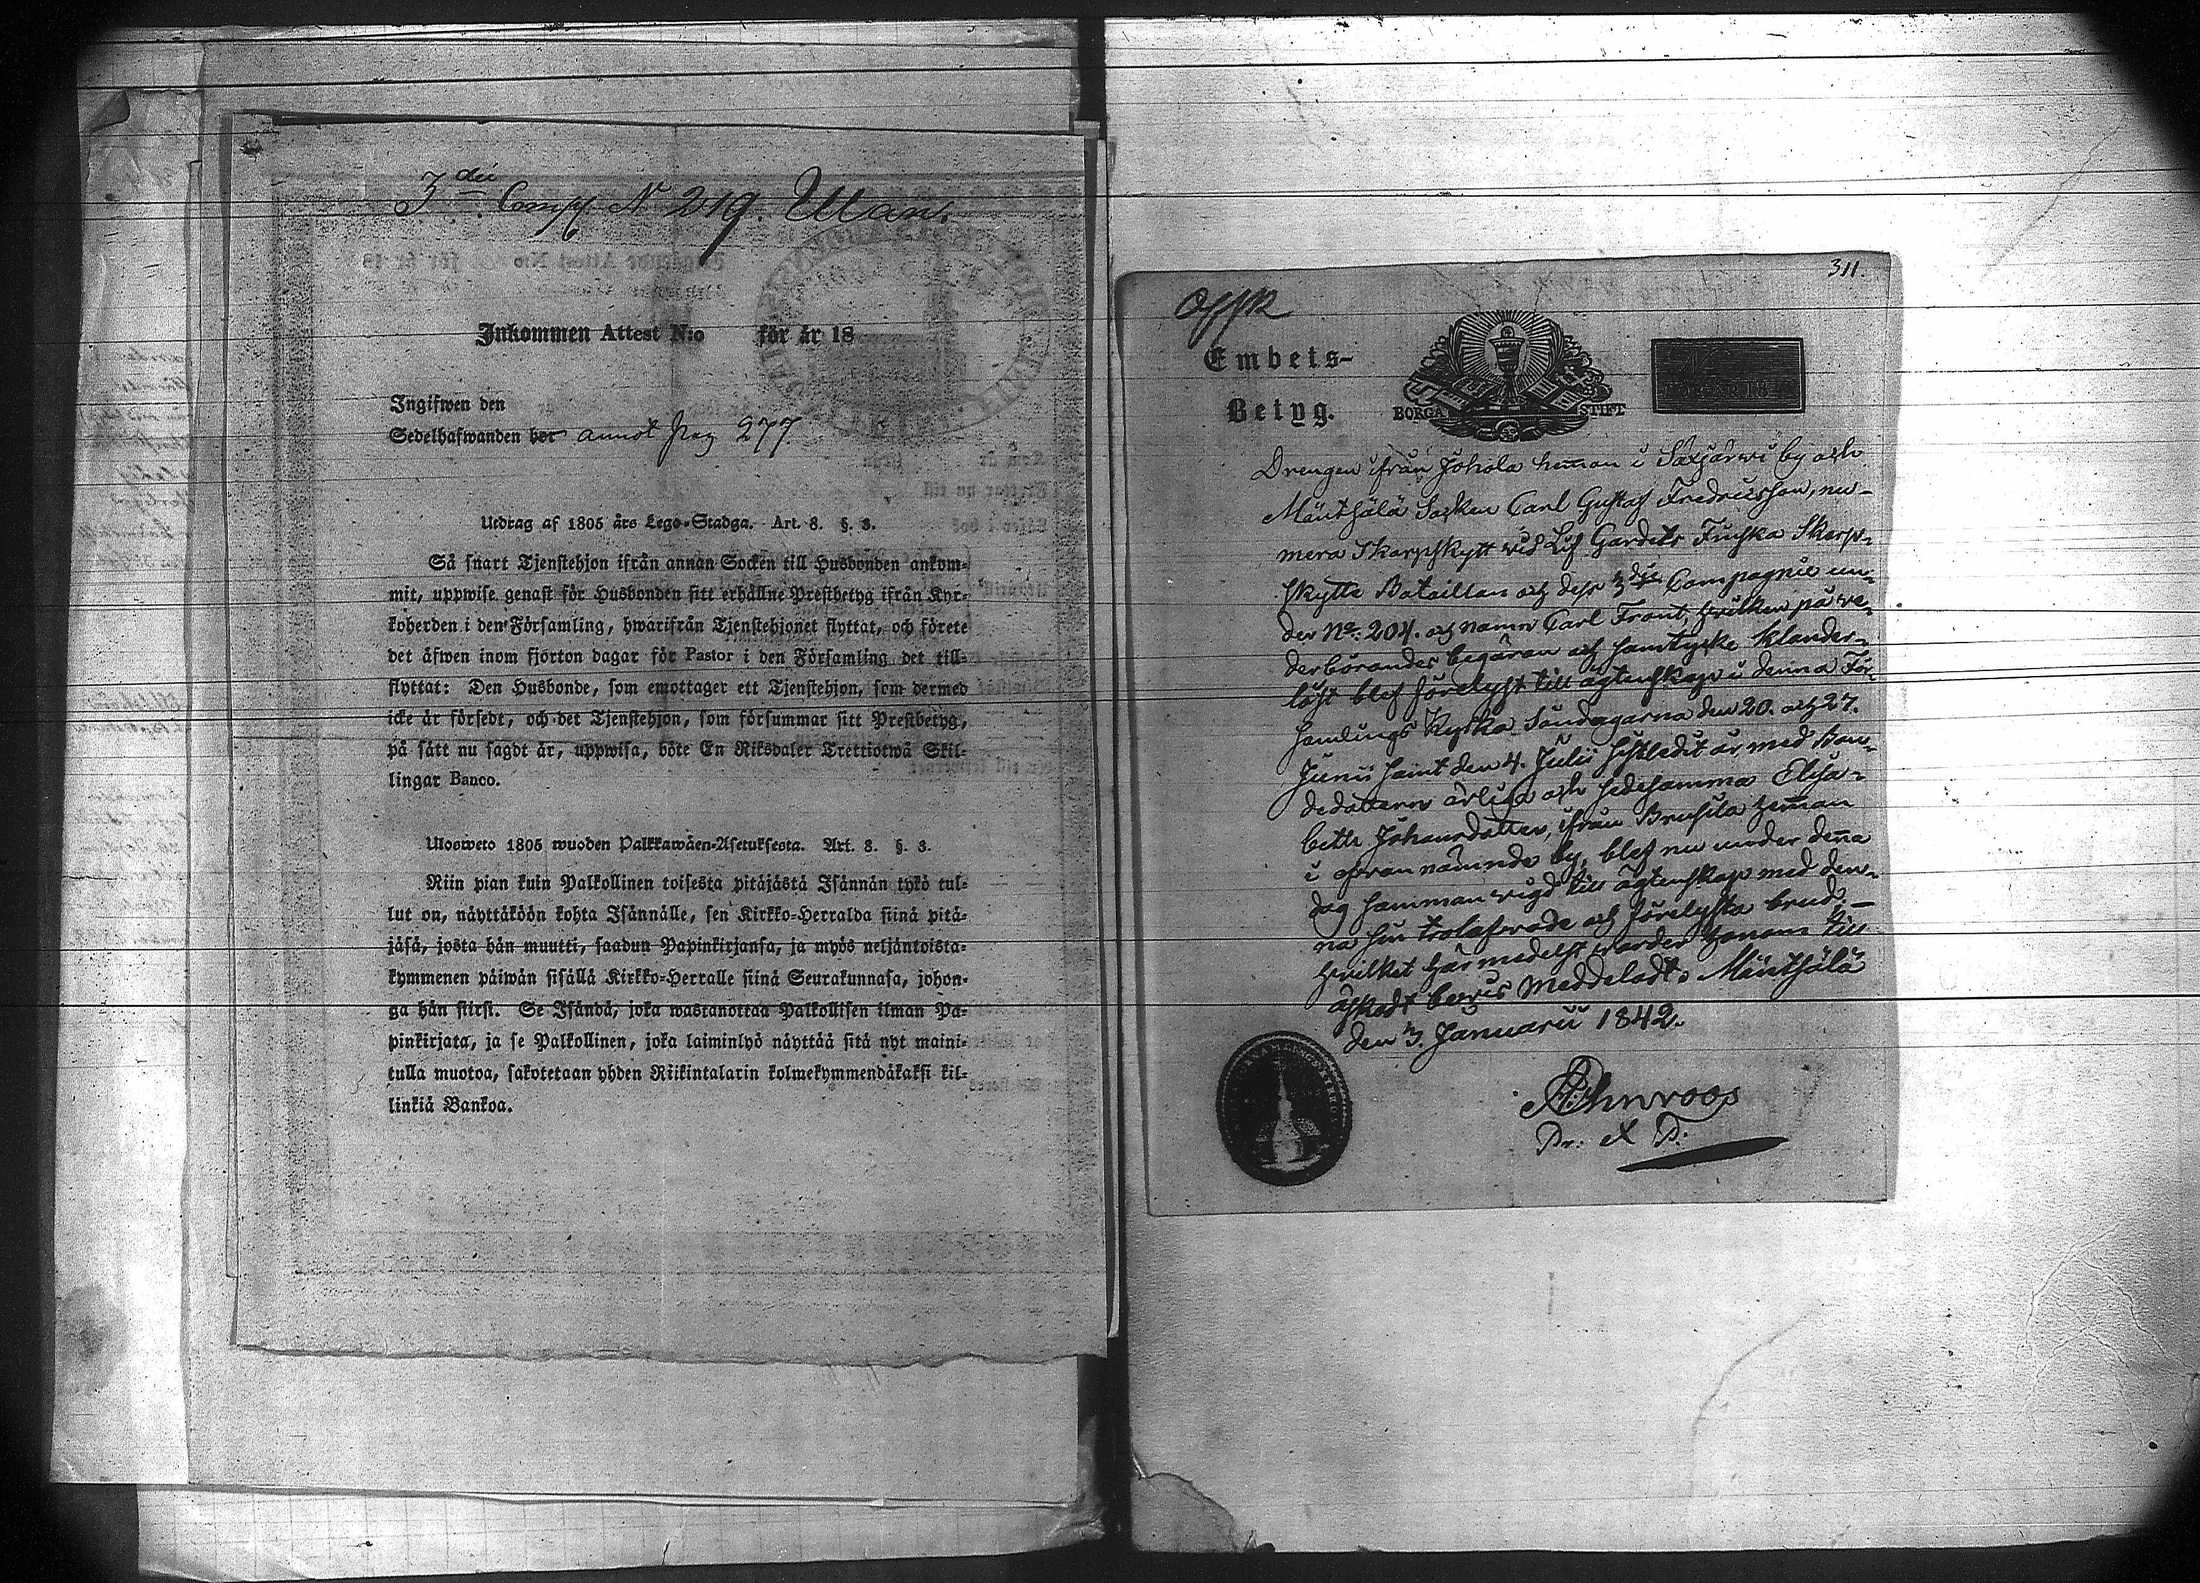 3die Comp N 219. Ulan.
Inkommen Attest N:o för år 18
Ingifwen den
Sedelhafwanden bor annot pag 277
Utdrag af 1805 års Lego-Stadga. Art. 8. §. 3.
Så snart Tjenstehjon ifrån annan Socken till Husbonden ankom-
mit, uppwise genast för Husbonden sitt erhållne Prestbetyg ifrån Kyr-
koherden i den Församling, hwarifrån Tjenstehjonet flyttat, och förete
det äfwen inom fjorton dagar för Pastor i den Församling det till-
flyttat: Den Husbonde, som emottager ett Tjenstehjon, som dermed
icke är försedt, och det Tjenstehjon, som försummar sitt Prestbetyg,
på sätt nu sagdt är, uppwisa, böte En Riksdaler Trettiotwå Skil-
lingar Banco.
Ulosweto 1805 wuoden Palkkawäen-Asetuksesta. Art. 8. §. 3.
Niin pian kuin Palkollinen toisesta pitäjästä Isännän tykö tul-
lut on, näyttäköön kohta Isännälle, sen Kirkko-Herralda siinä pitä-
jäsä, josta hän muutti, saadun Papinkirjansa, ja myös neljäntoista-
kymmenen päiwän sisällä Kirkko-Herralle siinä Seurakunnasa, johon-
ga hän siirsi. Se Isändä, joka wastanottaa Palkollisen ilman Pa-
pinkirjata, ja se Palkollinen, joka laiminlyö näyttää sitä nyt maini-
tulla muotoa, sakotetaan yhden Riikintalarin kolmekymmendäkaksi kil-
linkiä Bankoa.
311.
Embets-
Betyg.
BORGA STIFT
Drengen ifrån Johola heman i Saxjärwi by och
Mäntsälä Socken Carl Gustaf Fredricsson, nu-
mera Skarpskytt wid Lif Gardets Finska Skarp-
skytte Bataillon och dess 3dje Compagnie un-
der No: 204. och namn Carl Front, hwilken på we-
derbörandes begäran och samtycke klander-
löst blef förelyst till ägtenskap i denna För-
samlings Kyrka Söndagarna den 20. och 27.
Junii samt den 4. Julii sistledit år med Bon-
dedottern ärliga och sedesamma Elisa-
beth Johansdotter, ifrån Brusila heman
i ofvannämnde by, blef nu under denna
dag samman wigd till ägtenskap med den-
na sin trolofwade och förelysta brud. —
Hwilket härmedelst warder honom till
äskadt bewis meddeladt. Mäntsälä
den 3. Januarii 1842.
Pr: & P: